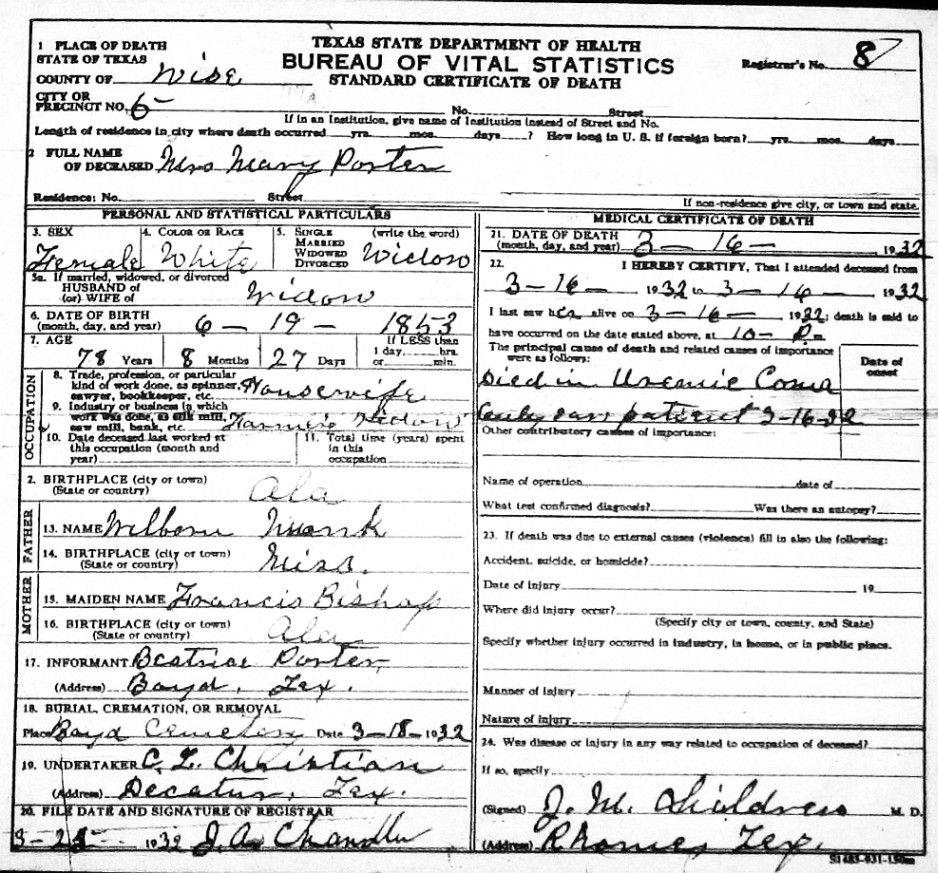 TEXAS STATE DEPARTMENT OF HEALTH
BUREAU OF VITAL STATISTICS
STANDARD CERTIFICATE OF DEATH
Registrar's No. 8
1 PLACE OF DEATH
STATE OF TEXAS
COUNTY OF Wise
CITY OR
PRECINCT NO. 6 No. Street
If in an Institution, give name of Institution instead of Street and No.
Length of residence in city where death occurred yrs. mos. days ? How long in U. S. if foreign born? yrs. mos. days
2 FULL NAME
OF DECEASED Mrs Mary Porter
Residence: No. Street If non-residence give city, or town and state.
PERSONAL AND STATISTICAL PARTICULARS
3. SEX Female
4. COLOR OR RACE White
5. SINGLE MARRIED WIDOWED DIVORCED (write the word) Widow
5a. If married, widowed, or divorced
HUSBAND of
(or) WIFE of Widow
6. DATE OF BIRTH
(month, day, and year) 6 - 19 - 1853
7. AGE 78 Years 8 Months 27 Days If LESS than 1 day hrs. or min.
OCCUPATION
8. Trade, profession, or particular
kind of work done, as spinner,
sawyer, bookkeeper, etc. Housewife
9. Industry or business in which
work was done, as silk mill,
saw mill, bank, etc. Widow
10. Date deceased last worked at
this occupation (month and
year)
11. Total time (years) spent
in this
occupation
2. BIRTHPLACE (city or town)
(State or country) Ala
FATHER
13. NAME Wilborn
14. BIRTHPLACE (city or town)
(State or country) Miss.
MOTHER
15. MAIDEN NAME Francis Bishop
16. BIRTHPLACE (city or town)
(State or country) Ala
17. INFORMANT Beatrice Porter
(Address) Boyd, Tex.
18. BURIAL, CREMATION, OR REMOVAL
Place Boyd Cemetery Date 3-18-1932
19. UNDERTAKER C. L. Christian
(Address) Decatur, Tex.
20. FILE DATE AND SIGNATURE OF REGISTRAR
1932 J. A. Chandler
MEDICAL CERTIFICATE OF DEATH
21. DATE OF DEATH
(month, day, and year) 3 - 16 - 1932
22. I HEREBY CERTIFY, That I attended deceased from
3-16- 1932 to 3-16- 1932
I last saw her alive on 3-16- 1932; death is said to
have occurred on the date stated above, at 10- P. m.
The principal cause of death and related causes of importance
were as follows:
Date of
onset
Died in Uremic Coma
Only saw patient 3-16-32
Other contributory causes of importance:
Name of operation date of
What test confirmed diagnosis? Was there an autopsy?
23. If death was due to external causes (violence) fill in also the following:
Accident, suicide, or homicide?
Date of injury 19
Where did injury occur?
(Specify city or town, county, and State)
Specify whether injury occurred in industry, in home, or in public place.
Manner of injury
Nature of injury
24. Was disease or injury in any way related to occupation of deceased?
If so, specify
(Signed) J. M. Childress M. D.
(Address) Rhome, Tex.
S1483-931-150m